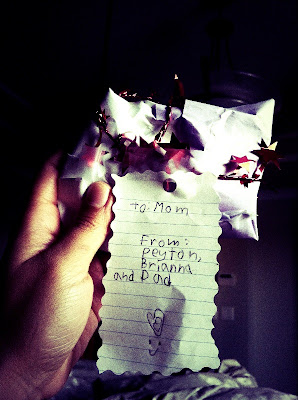 To: Mom
From:
Peyton,
Brianna
and Dad